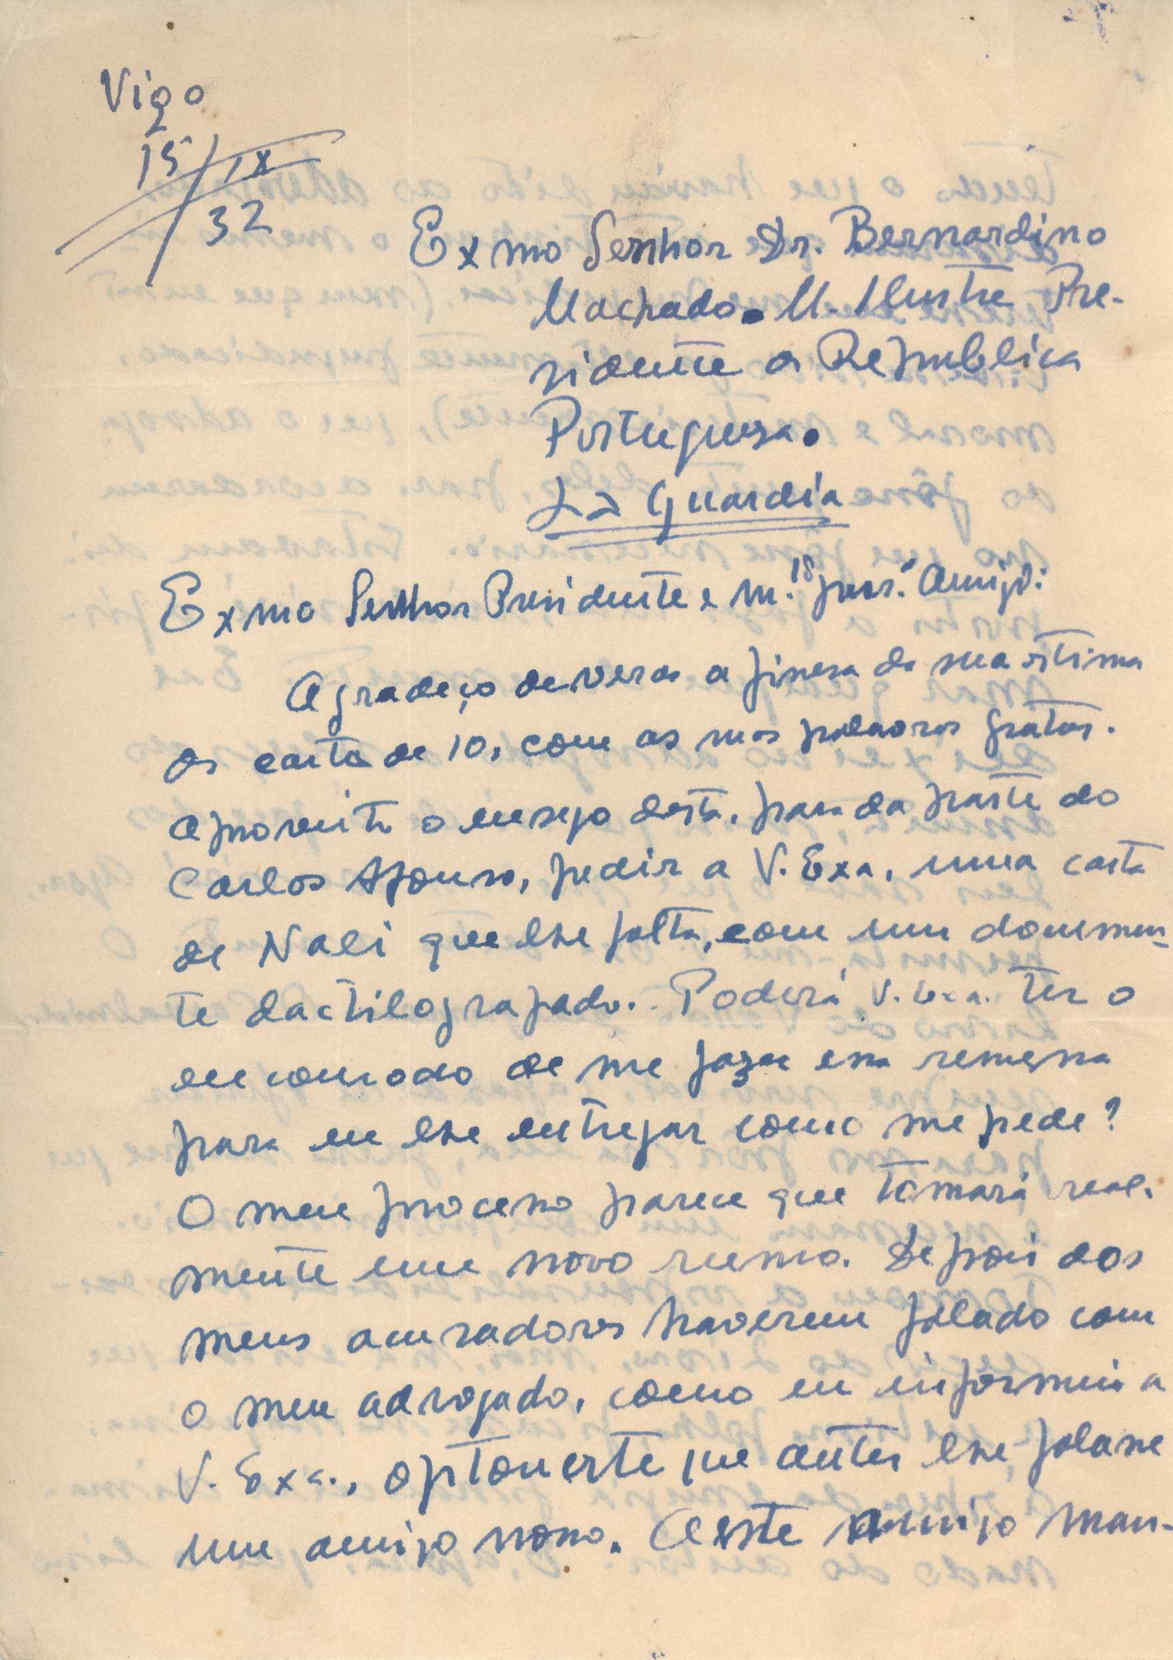 Vigo
15/IX
32
Exmo Senhor Dr. Bernardino
Machado. M. Ilustre Pre-
sidente da Republica
Portuguesa.
La Guardia
Exmo Senhor Presidente e m.to Amigo:
Agradeço deveras a finesa da sua ultima
de carta de 10, com as suas palavras gratas.
Aproveito o ensejo desta, para da parte do
Carlos Afonso, pedir a V. Exa, uma carta
de Nali que lhe falta, com um documen-
to dactilografado. Poderá V. Exa. ter o
encomodo de me fazer essa remessa
para eu lhe entregar como me pede?
O meu processo parece que tomará real-
mente um novo rumo. Depois dos
meus acusadores haverem falado com
o meu advogado, como eu informei a
V. Exa., que antes lhe falasse
um amigo nosso. A este amigo man-